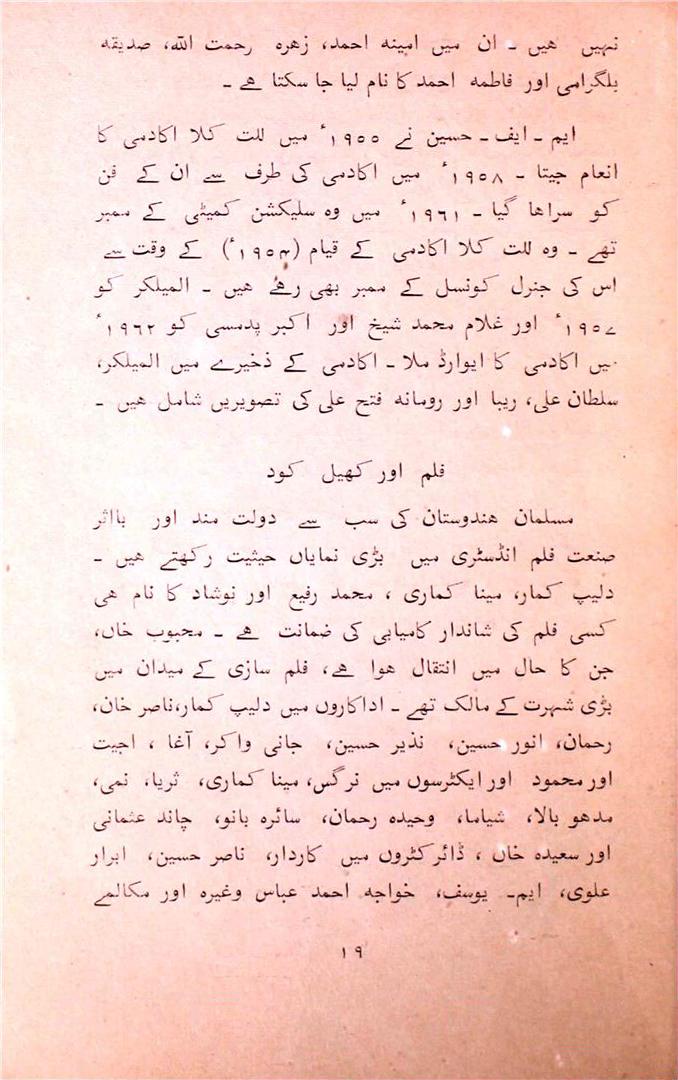 نہیں ہیں ـ ان میں امینہ احمد، زہرہ رحمت اللہ، صدیقہ
بلگرامی اور فاطمہ احمد کا نام لیا جا سکتا ہے ـ
ایم ـ ایف ـ حسین نے ۱۹۵۵ء میں للت کلا اکادمی کا
انعام جیتا ـ ۱۹۵۸ء میں اکادمی کی طرف سے ان کے فن
کو سراہا گیا ـ ۱۹۶۱ء میں وہ سلیکشن کمیٹی کے ممبر
تھے ـ وہ للت کلا اکادمی کے قیام (۱۹۵۴ء) کے وقت سے
اس کی جنرل کونسل کے ممبر بھی رہے ہیں ـ المیلکر کو
۱۹۵۷ء اور غلام محمد شیخ اور اکبر پدمسی کو ۱۹۶۲ء
میں اکادمی کا ایوارڈ ملا ـ اکادمی کے ذخیرے میں المیلکر،
سلطان علی، ریبا اور رومانہ فتح علی کی تصویریں شامل ہیں ـ
فلم اور کھیل کود
مسلمان ہندوستان کی سب سے دولت مند اور بااثر
صنعت فلم انڈسٹری میں بڑی نمایاں حیثیت رکھتے ہیں ـ
دلیپ کمار، مینا کماری ، محمد رفیع اور نوشاد کا نام ہی
کسی فلم کی شاندار کامیابی کی ضمانت ہے ـ محبوب خاں،
جن کا حال میں انتقال ہوا ہے، فلم سازی کے میدان میں
بڑی شہرت کے مالک تھے ـ اداکاروں میں دلیپ کمار،ناصر خان،
رحمان، انور حسین، نذیر حسین، جانی واکر، آغا ، اجیت
اور محمود اور ایکٹرسوں میں نرگس، مینا کماری، ثریا، نمی،
مدھو بالا، شیاما، وحیدہ رحمان، سائرہ بانو، چاند عثمانی
اور سعیدہ خاں ، ڈائرکٹروں میں کاردار، ناصر حسین، ابرار
علوی، ایم۔ یوسف، خواجہ احمد عباس وغیرہ اور مکالمے
۱۹